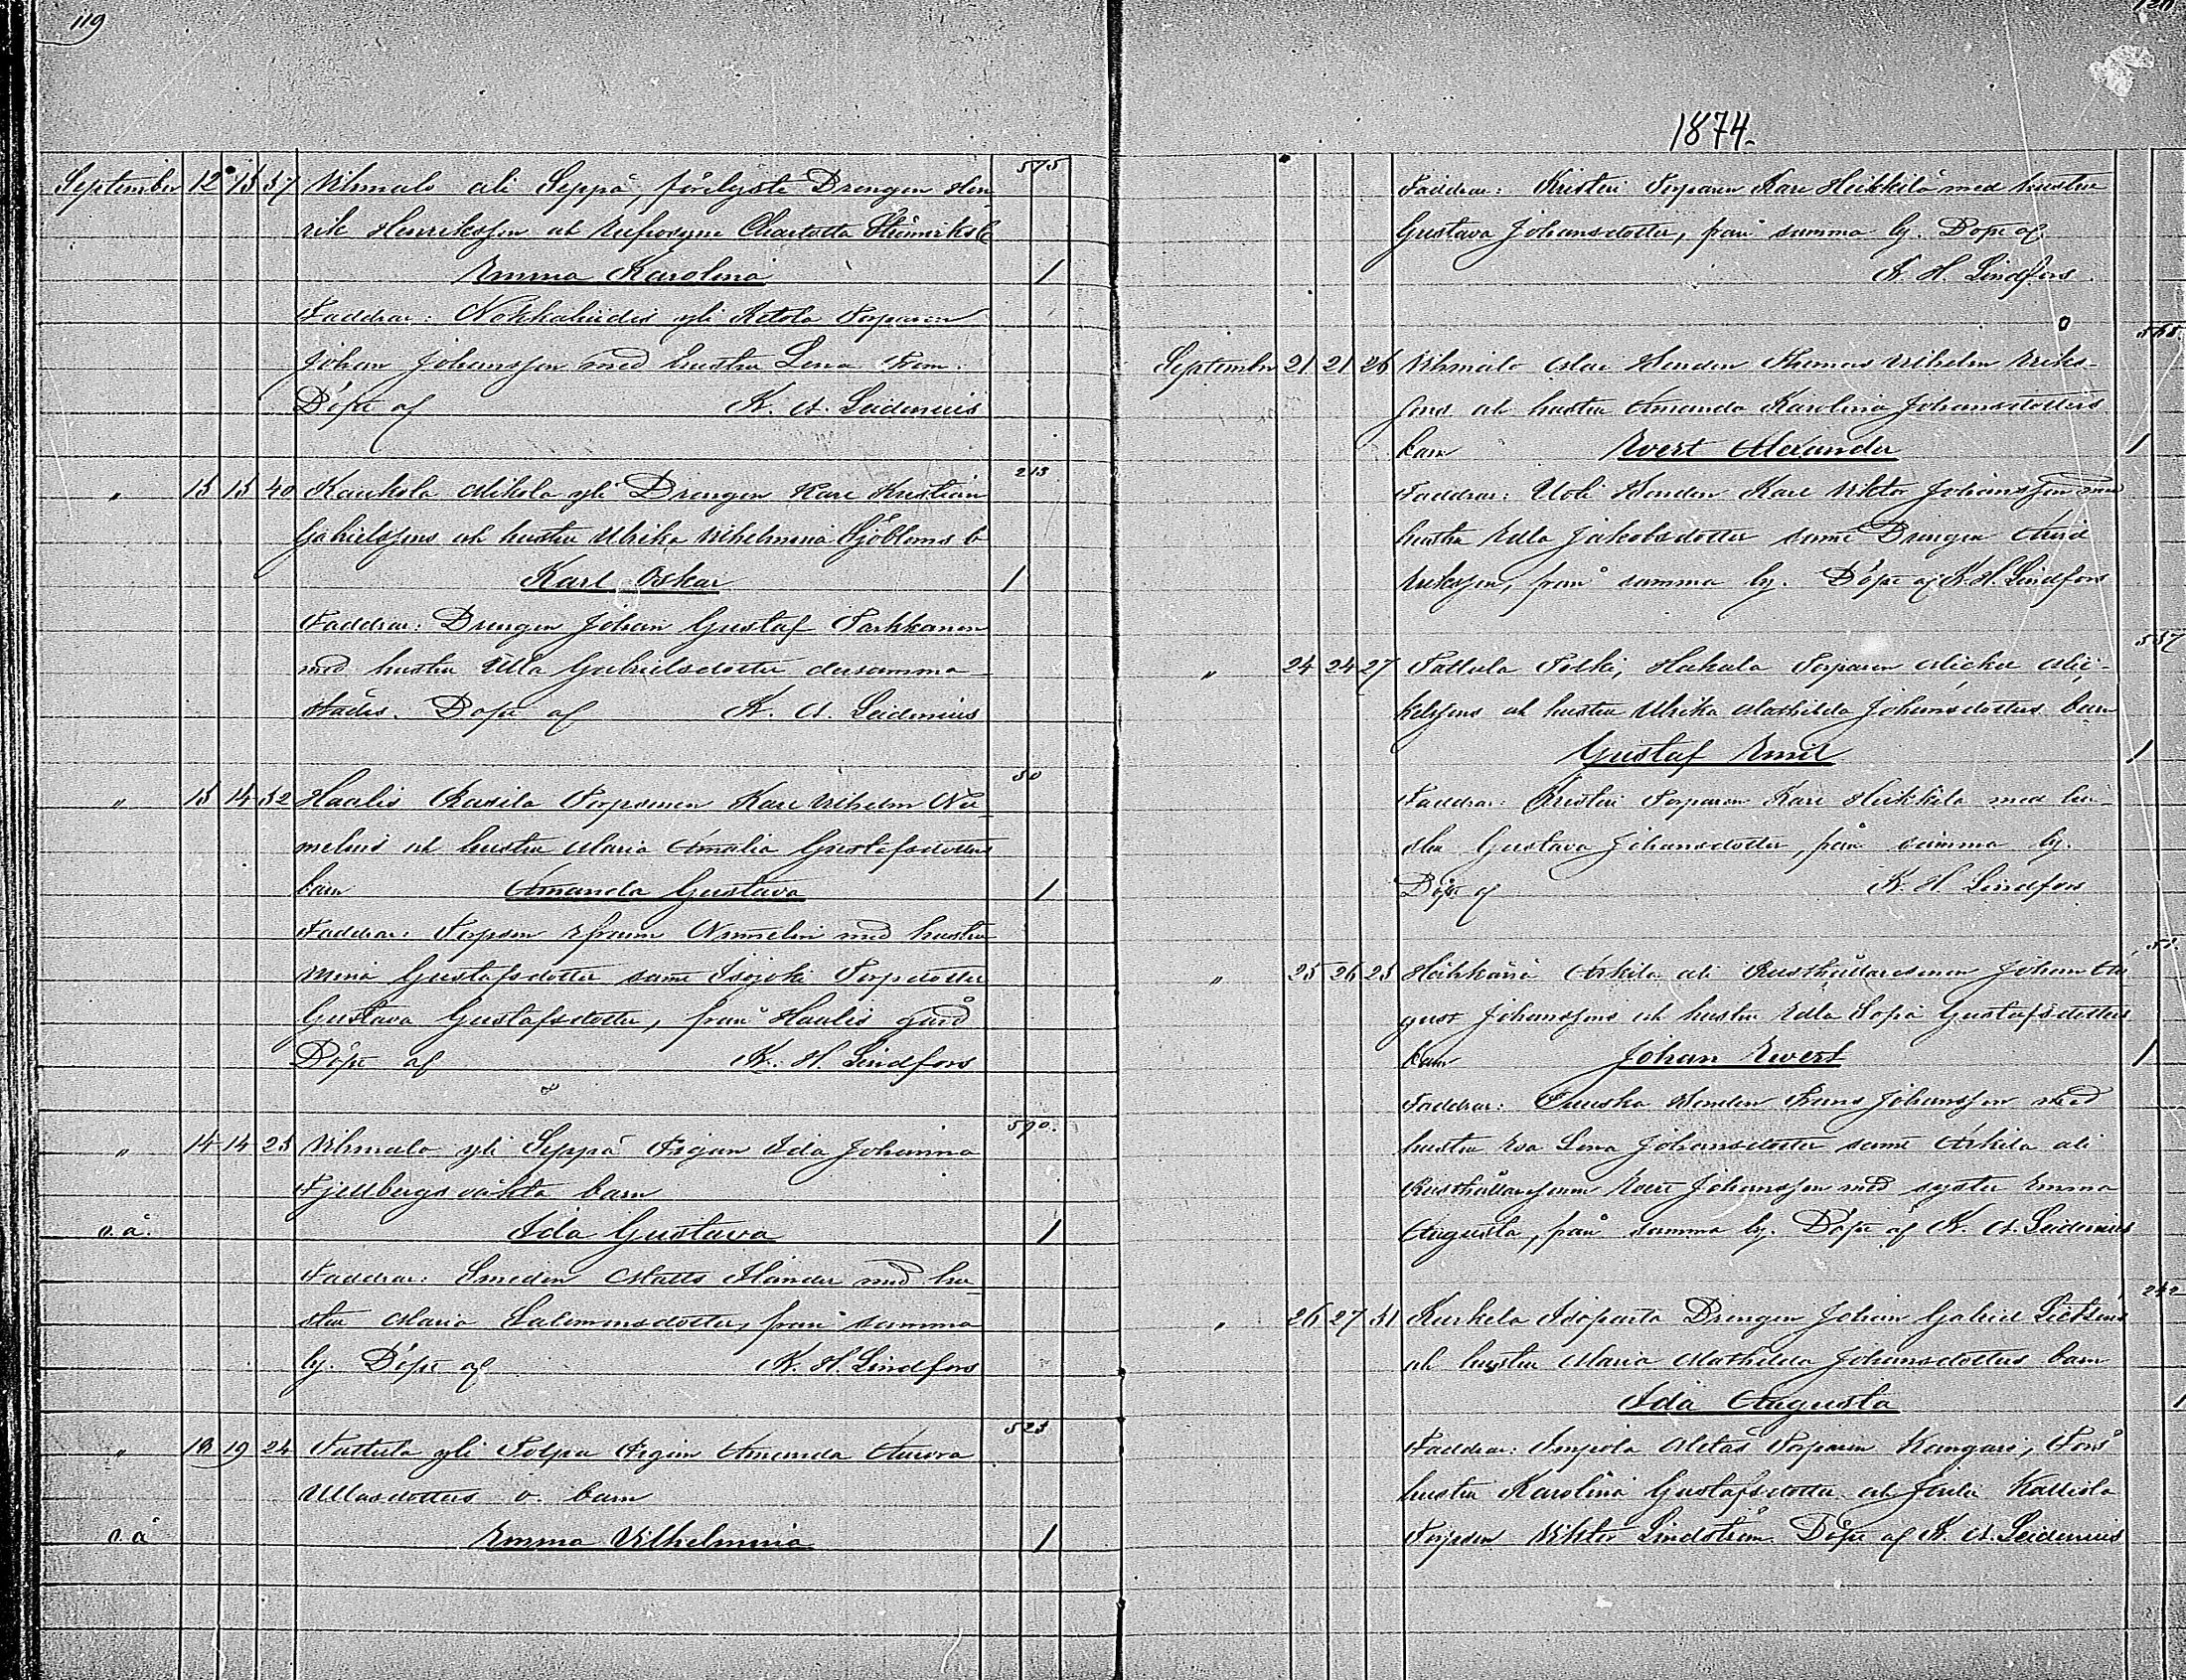 119
575
September 12 13 37 Vihmalo ali Seppä, förelyste Drengen Hen
rik Henriksson och Eufrosyne Charlotta Henriks
Emma Karolina 1
Faddrar: Nokkahuidis yli Ketola Torparen
Johan Johansson med hustru Lena
Döpt af K. A. Leidenius
213
" 13 13 40 Kaukola Mikola yli Drengen Karl Kristian
Gabrielssons och hustru Ulrika Vilhelmina Sjöbloms b
Karl Oskar 1
Faddrar: Drengen Johan Gustaf Tarkkanen
med hustru Ulla Gabrielsdotter dersamma-
städes. Döpt af K. A. Leidenius
50
" 13 14 32 Haalis Rasila Torparen Karl Vilhelm Nu-
melins och hustru Maria Amalia Gustafsdotters
barn Amanda Gustava 1
Faddrar: Torpson Efraim Numelin med hustru
Mina Gustafsdotter samt Isojoki Torpdotter
Gustava Gustafsdotter, från Haalis gård
Döpt af K. H. Lindfors
590.
" 14 14 23 Vihmalo yli Seppä Pigan Ida Johanna
Fjellbergs oäkta barn
o.ä. Ida Gustava 1
Faddrar: Smeden Matts Ilander med hu-
stru Maria Salomonsdotter, från samma
by. Döpt af K. H. Lindfors
523
" 18 19 24 Tattula yli Tolpa Pigan Amanda Aurora
Ullasdotters o. barn
o.ä Emma Vilhelmina 1
120
1874.
Faddrar: Kristivi Torparen Karl Heikkilä med hustru
Gustava Johansdotter, från samma by. Döpt af
K. H. Lindfors
568.
September 21 21 26 Vihmalo Bonden Thomas Vilhelm Eriks-
sons och hustru Amanda Karolina Johansdotters
barn Evert Alexander 1
Faddrar: Uoti Bonden Karl Viktor Johansson med
hustru Edla Jakobsdotter samt Drengen Arvid
Eriksson, från samma by. Döpt af K. H. Lindfors
537
" 24 24 27 Tattula Tolki, Hakala Torparen Mickel Mic-
kelssons och hustru Ulrika Mathilda Johansdotters barn
Gustaf Emil 1
Faddrar: Kristivi Torparen Karl Heikkilä med hu-
stru Gustava Johansdotter, från samma by.
Döpt af K. H. Lindfors
51.
" 25 26 23 Heikkärä Arkila ali Rusthållaresonen Johan Au
gust Johanssons och hustru Edla Sofia Gustafsdotters
barn Johan Evert 1
Faddrar: Bonden Frans Johansson med
hustru Eva Lena Johansdotter samt Arkila ali
Rusthållaresonen Evert Johansson med syster Emma
Augusta, från samma by. Döpt af K. A. Leidenius
242
" 26 27 31 Kurkela Isoparta Drengen Johan Gabriel
och hustru Maria Mathilda Johansdotters barn
Ida Augusta 1
Faddrar: Impola Alitas Torparen Kangari,
hustru Karolina Gustafsdotter och Kallisla
Torpson Viktor Lindström. Döpt af K. A. Leidenius